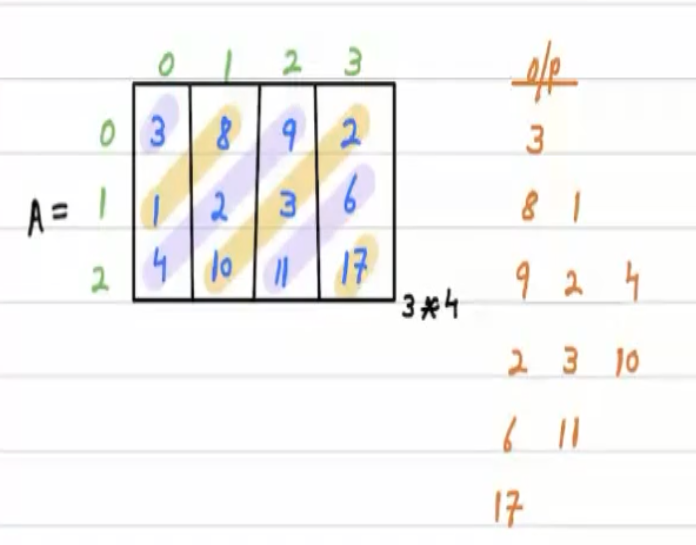 0 1 2 3
0 3 8 9 2
A = 1 1 2 3 6
2 4 10 11 17
3*4
O/P
3
8 1
9 2 4
2 3 10
6 11
17